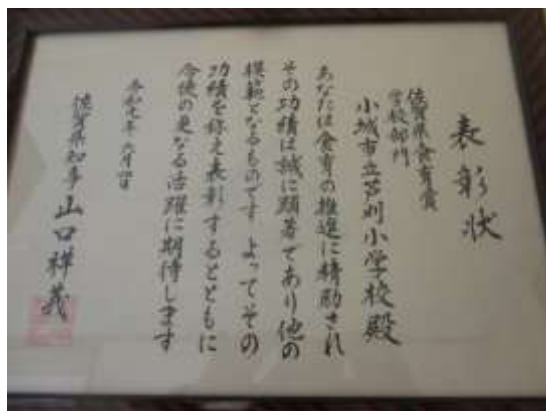 表彰状
佐賀県食育賞
学校部門
小城市立芦刈小学校殿
あなたは食育の推進に精励され
その功績は誠に顕著であり他の
模範となるものです よってその
功績を称え表彰するとともに
今後の更なる活躍に期待します
令和七年 六月四日
佐賀県知事 山口祥義